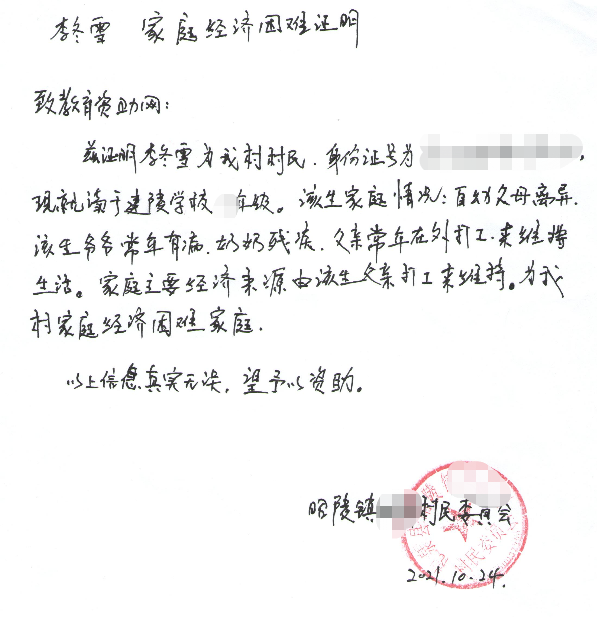 李冬雪 家庭经济困难证明
致教育资助网:
兹证明李冬雪为我村村民.身份证号为
现就读于建陵学校 年级。该生家庭情况:自幼父母离异.
该生爷爷常年有病.奶奶残疾.父亲常年在外打工来维持
生活。家庭主要经济来源由该生父亲打工来维持。为我
村家庭经济困难家庭.
以上信息真实无误,望予以资助。
昭陵镇 村民委员会
村民委员
2021.10.24.